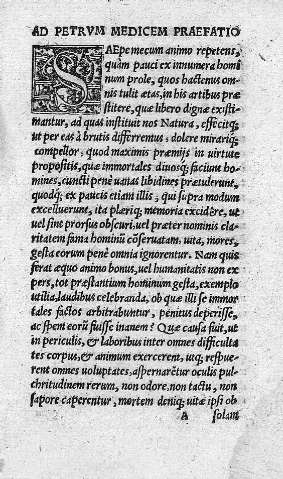 AD PETRVM MEDICEM PRAEFATIO
SAEpe mecum animo repetens,
quàm pauci ex innumera homi
num prole, quos hactenus om
nis tulit ætas, in his artibus præ
stitere, quæ libero dignæ existi-
mantur, ad quas instituit nos Natura, effecitq;
ut per eas à brutis differremus: dolere mirariq;
compellor, quod maximis præmijs in uirtute
propositis, quæ immortales diuosq; faciunt ho-
mines, cuncti penè uarias libidines prætulerint,
quodq; ex paucis etiam illis, qui supra modum
excelluerunt, ita pleriq; memoria excidêre, ut
uel sint prorsus obscuri, uel præter nominis cla-
ritatem fama hominũ cõseruatam, uita, mores,
gesta eorum penè omnia ignorentur. Nam quis
ferat æquo animo bonus, uel humanitatis non ex
pers, tot præstantium hominum gesta, exemplo
utilia, laudibus celebranda, ob quæ illi se immor
tales factos arbitrabuntur, penitus deperisse,
ac spem eorũ fuisse inanem? Quæ causa fuit, ut
in periculis, & laboribus inter omnes difficulta
tes corpus, & animum exercerent, utq; respue-
rent omnes uoluptates, aspernarẽtur oculis pul-
chritudinem rerum, non odore, non tactu, non
sapore caperentur, mortem deniq; uitæ ipsi ob
A solam